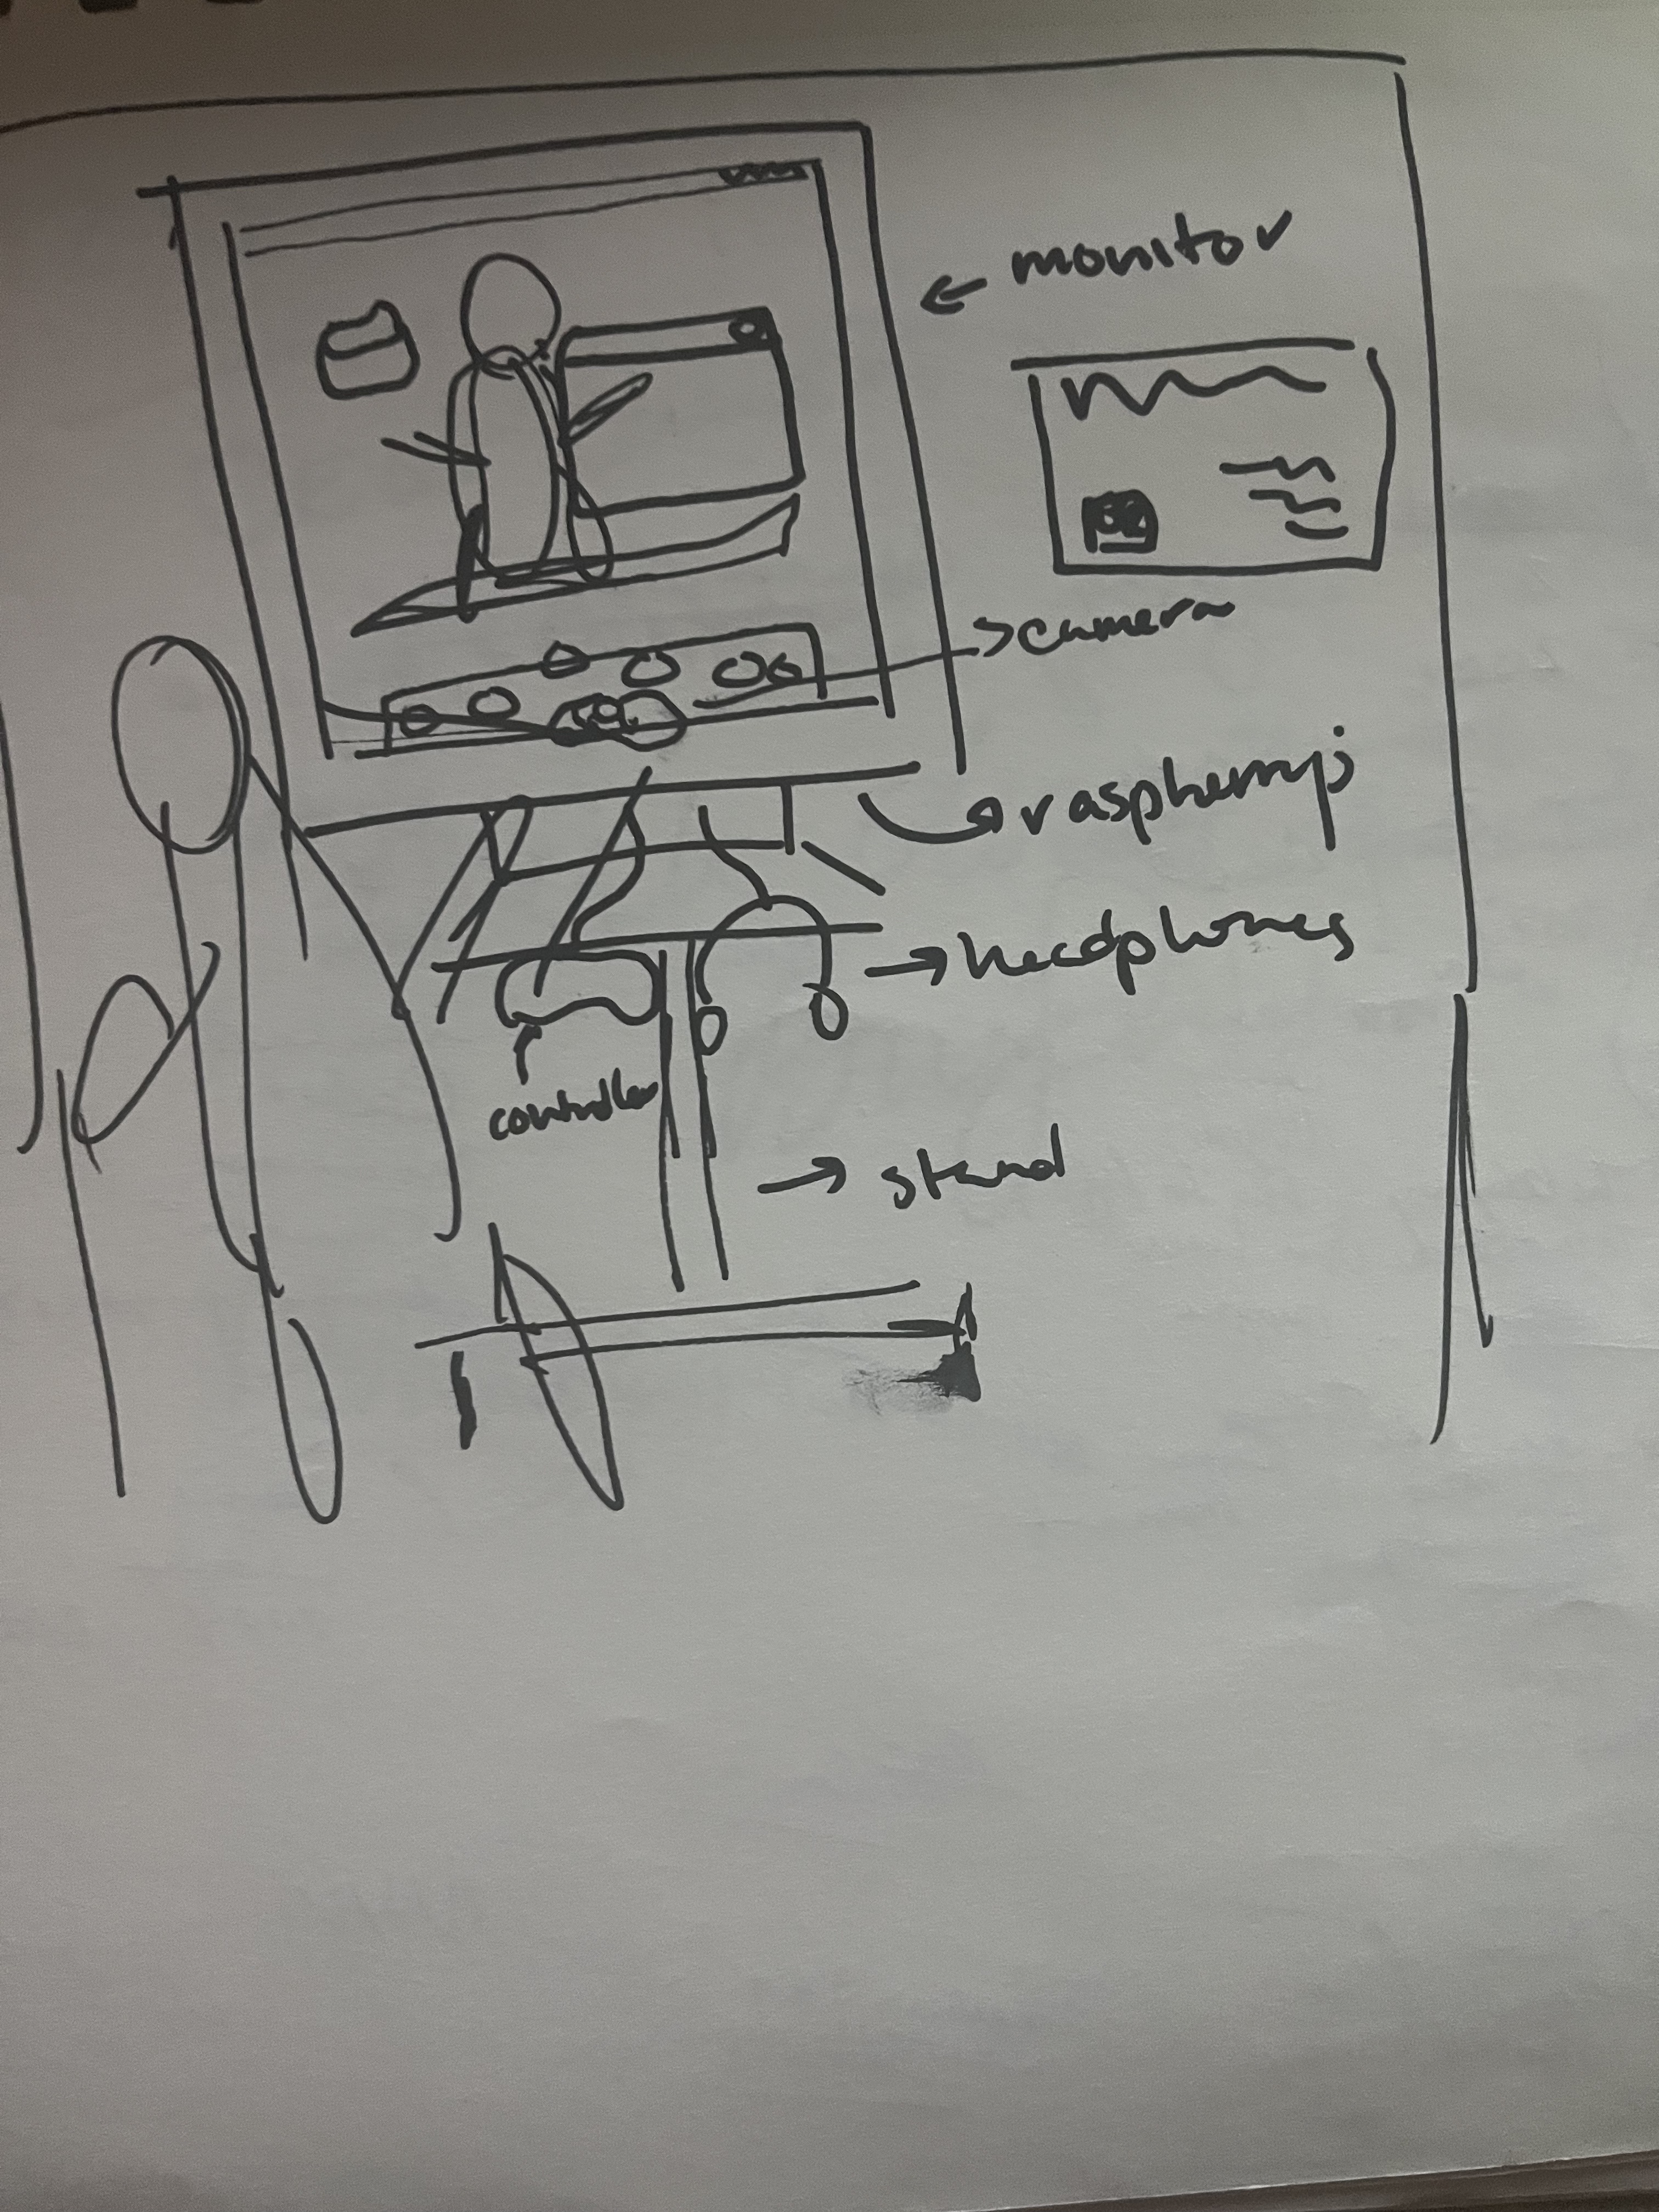 monitor
camera
raspberrypi
headphones
controller
stand